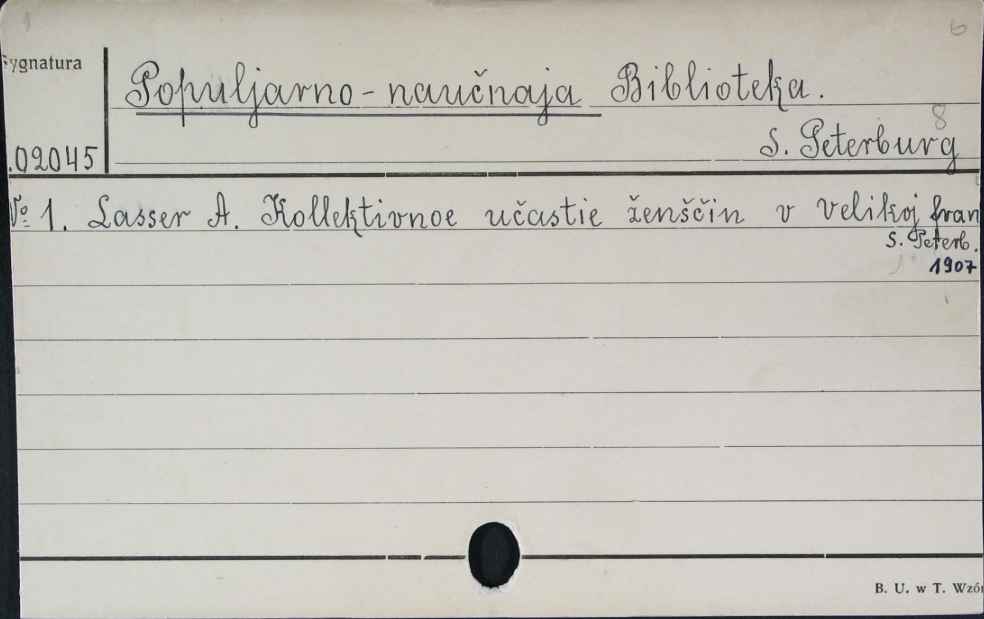 Sygnatura
Populjarno-naučnaja Biblioteka.
8
.02045
S. Peterburg
№ 1. Lasser A. Kollektivnoe učastie ženščin v velikoj fran
S. Peterb.
1907
B. U. w T. Wzór